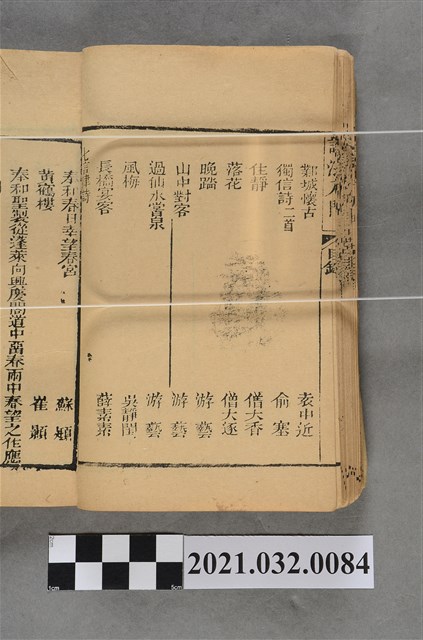 鄴城懷古 袁中近
獨信詩二首 俞塞
住靜 僧大香
落花 僧大遂
晚踏 游藝
山中對客 游藝
過仙水嘗泉 游藝
風梅 吳靜閨
長橋宴客 薛素素
奉和春日幸望春宮 蘇頲
黃鶴樓 崔顥
奉和聖製從蓬萊向興慶閣道中留春雨中春望之作應
目錄
2cm
1cm
5cm
2021.032.0084